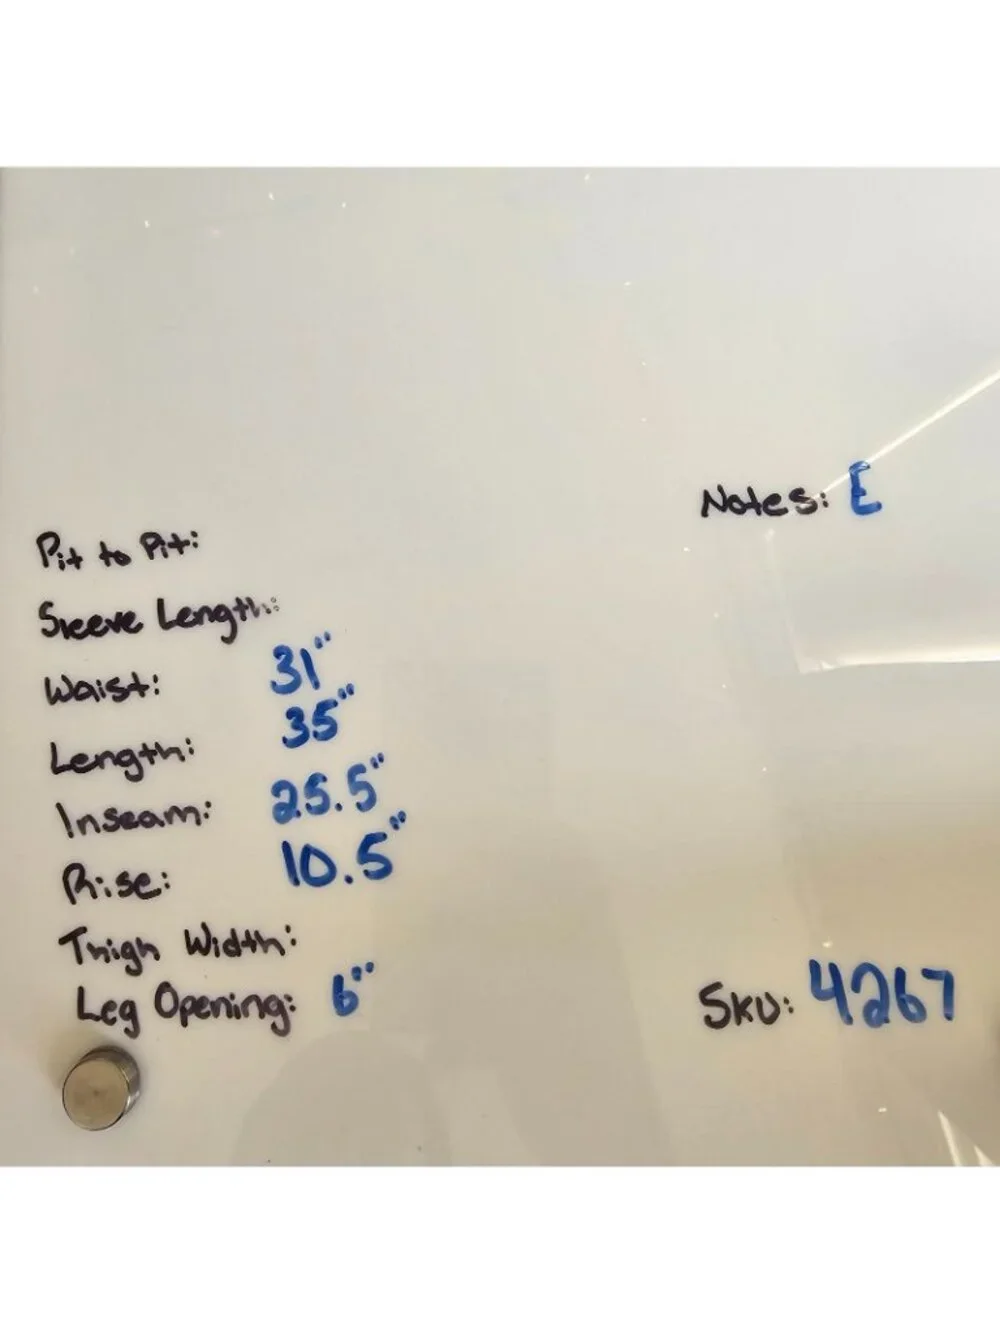 Notes: E
Pit to Pit:
Sleeve Length:
Waist: 31"
Length: 35"
Inseam: 25.5"
Rise: 10.5"
Thigh Width:
Leg Opening: 6"
SKU: 4267